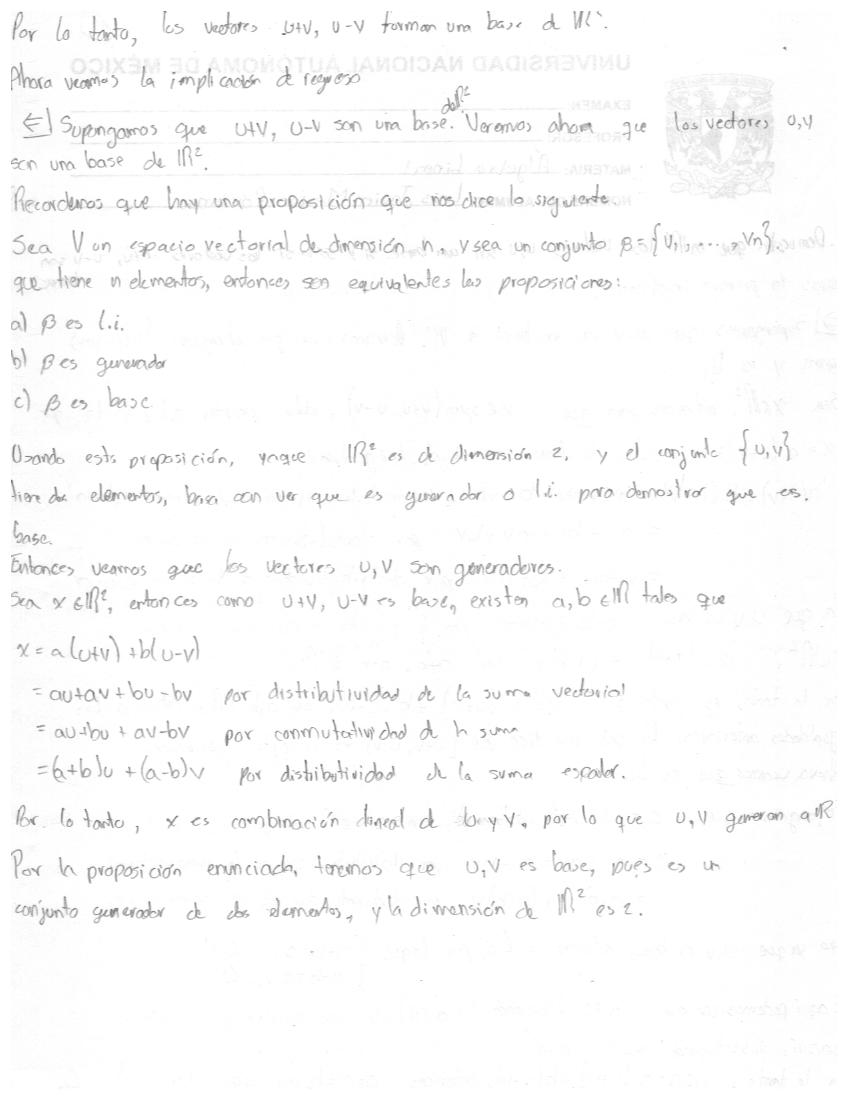 Por lo tanto, los vectores u+v, u-v forman una base de ℝ².
Ahora veamos la implicación de regreso
⇐] Supongamos que u+v, u-v son una base de ℝ². Veremos ahora que los vectores u,v
son una base de ℝ².
Recordemos que hay una proposición que nos dice lo siguiente
Sea V un espacio vectorial de dimensión n, y sea un conjunto β={v₁,...,vn}
que tiene n elementos, entonces son equivalentes las proposiciones:
a) β es l.i.
b) β es generador
c) β es base
Usando esta proposición, yaque ℝ² es de dimensión 2, y el conjunto {u,v}
tiene dos elementos, basa con ver que es generador o l.i. para demostrar que es.
base.
Entonces veamos que los vectores u,v son generadores.
Sea x∈ℝ², entonces como u+v, u-v es base, existen a,b∈ℝ tales que
x = a(u+v)+b(u-v)
= au+av+bu-bv por distributividad de la suma vectorial
= au+bu+av-bv por conmutatividad de la suma
=(a+b)u+(a-b)v por distributividad de la suma escalar.
Por lo tanto, x es combinación lineal de u y v, por lo que u,v generan a ℝ
Por la proposición enunciada, tenemos que u,v es base, pues es un
conjunto generador de dos elementos, y la dimensión de ℝ² es 2.